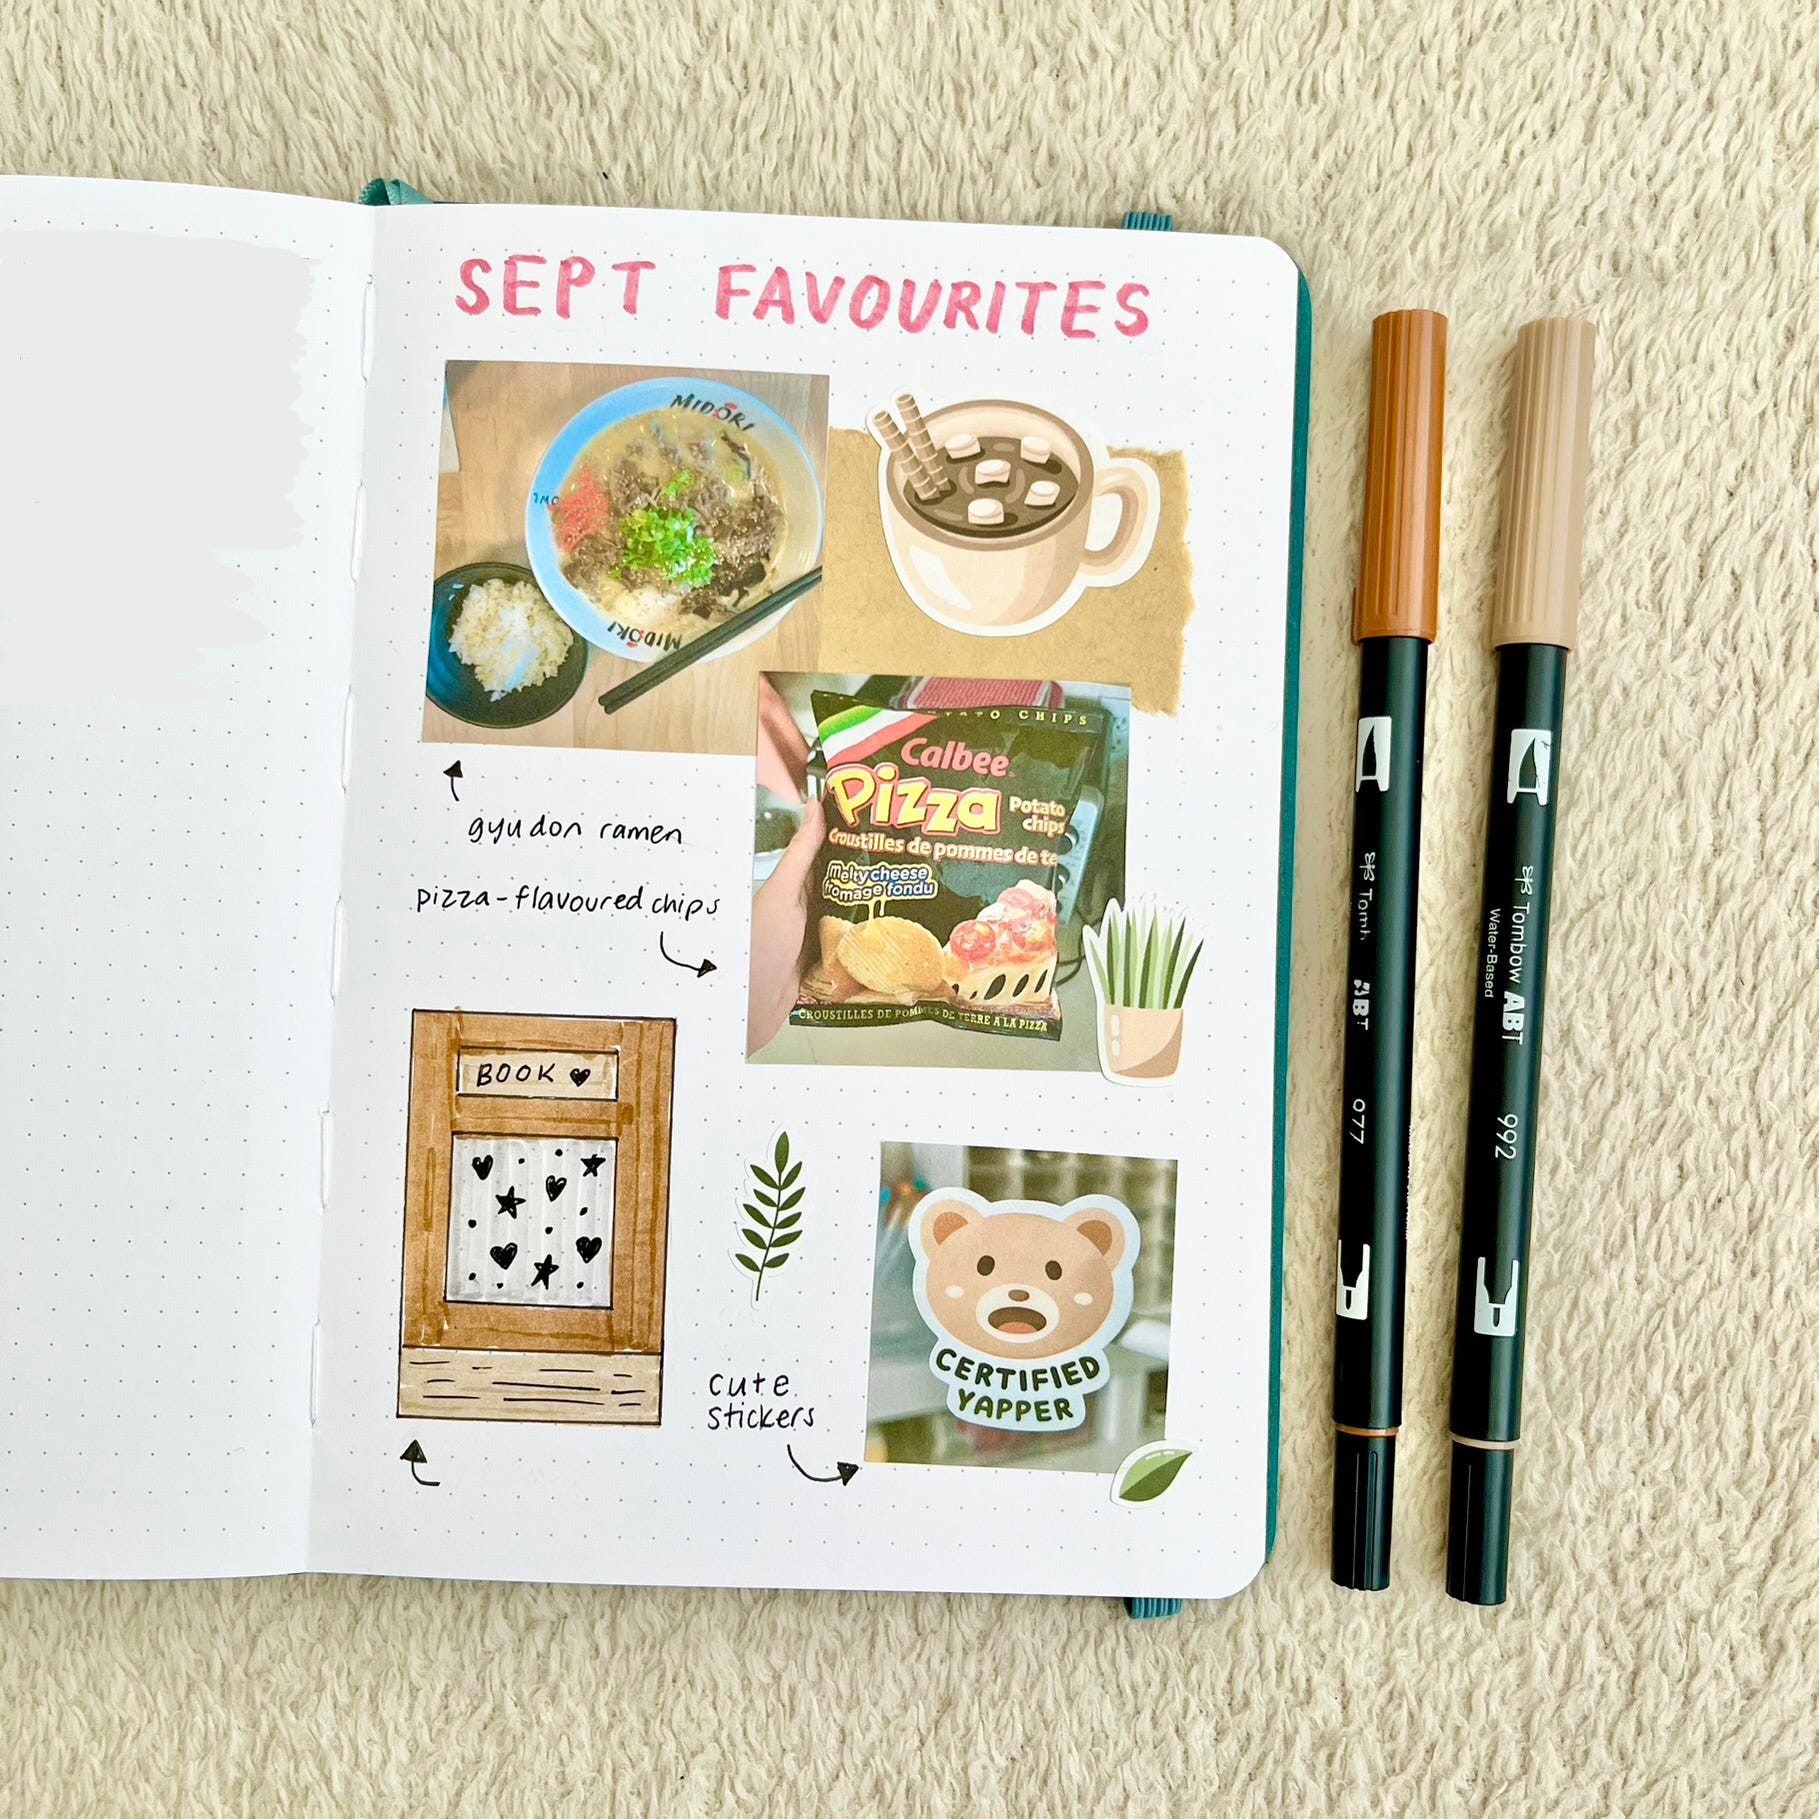 SEPT FAVOURITES
MIDORI
MIDORI
POTATO CHIPS
Calbee
Pizza Potato chips
Croustilles de pommes de te
melty cheese
fromage fondu
CROUSTILLES DE POMMES DE TERRE A LA PIZZA
gyudon ramen
pizza-flavoured chips
BOOK
cute
stickers
CERTIFIED
YAPPER
Tomb ABT 077
Tombow ABT 992
Water-Based